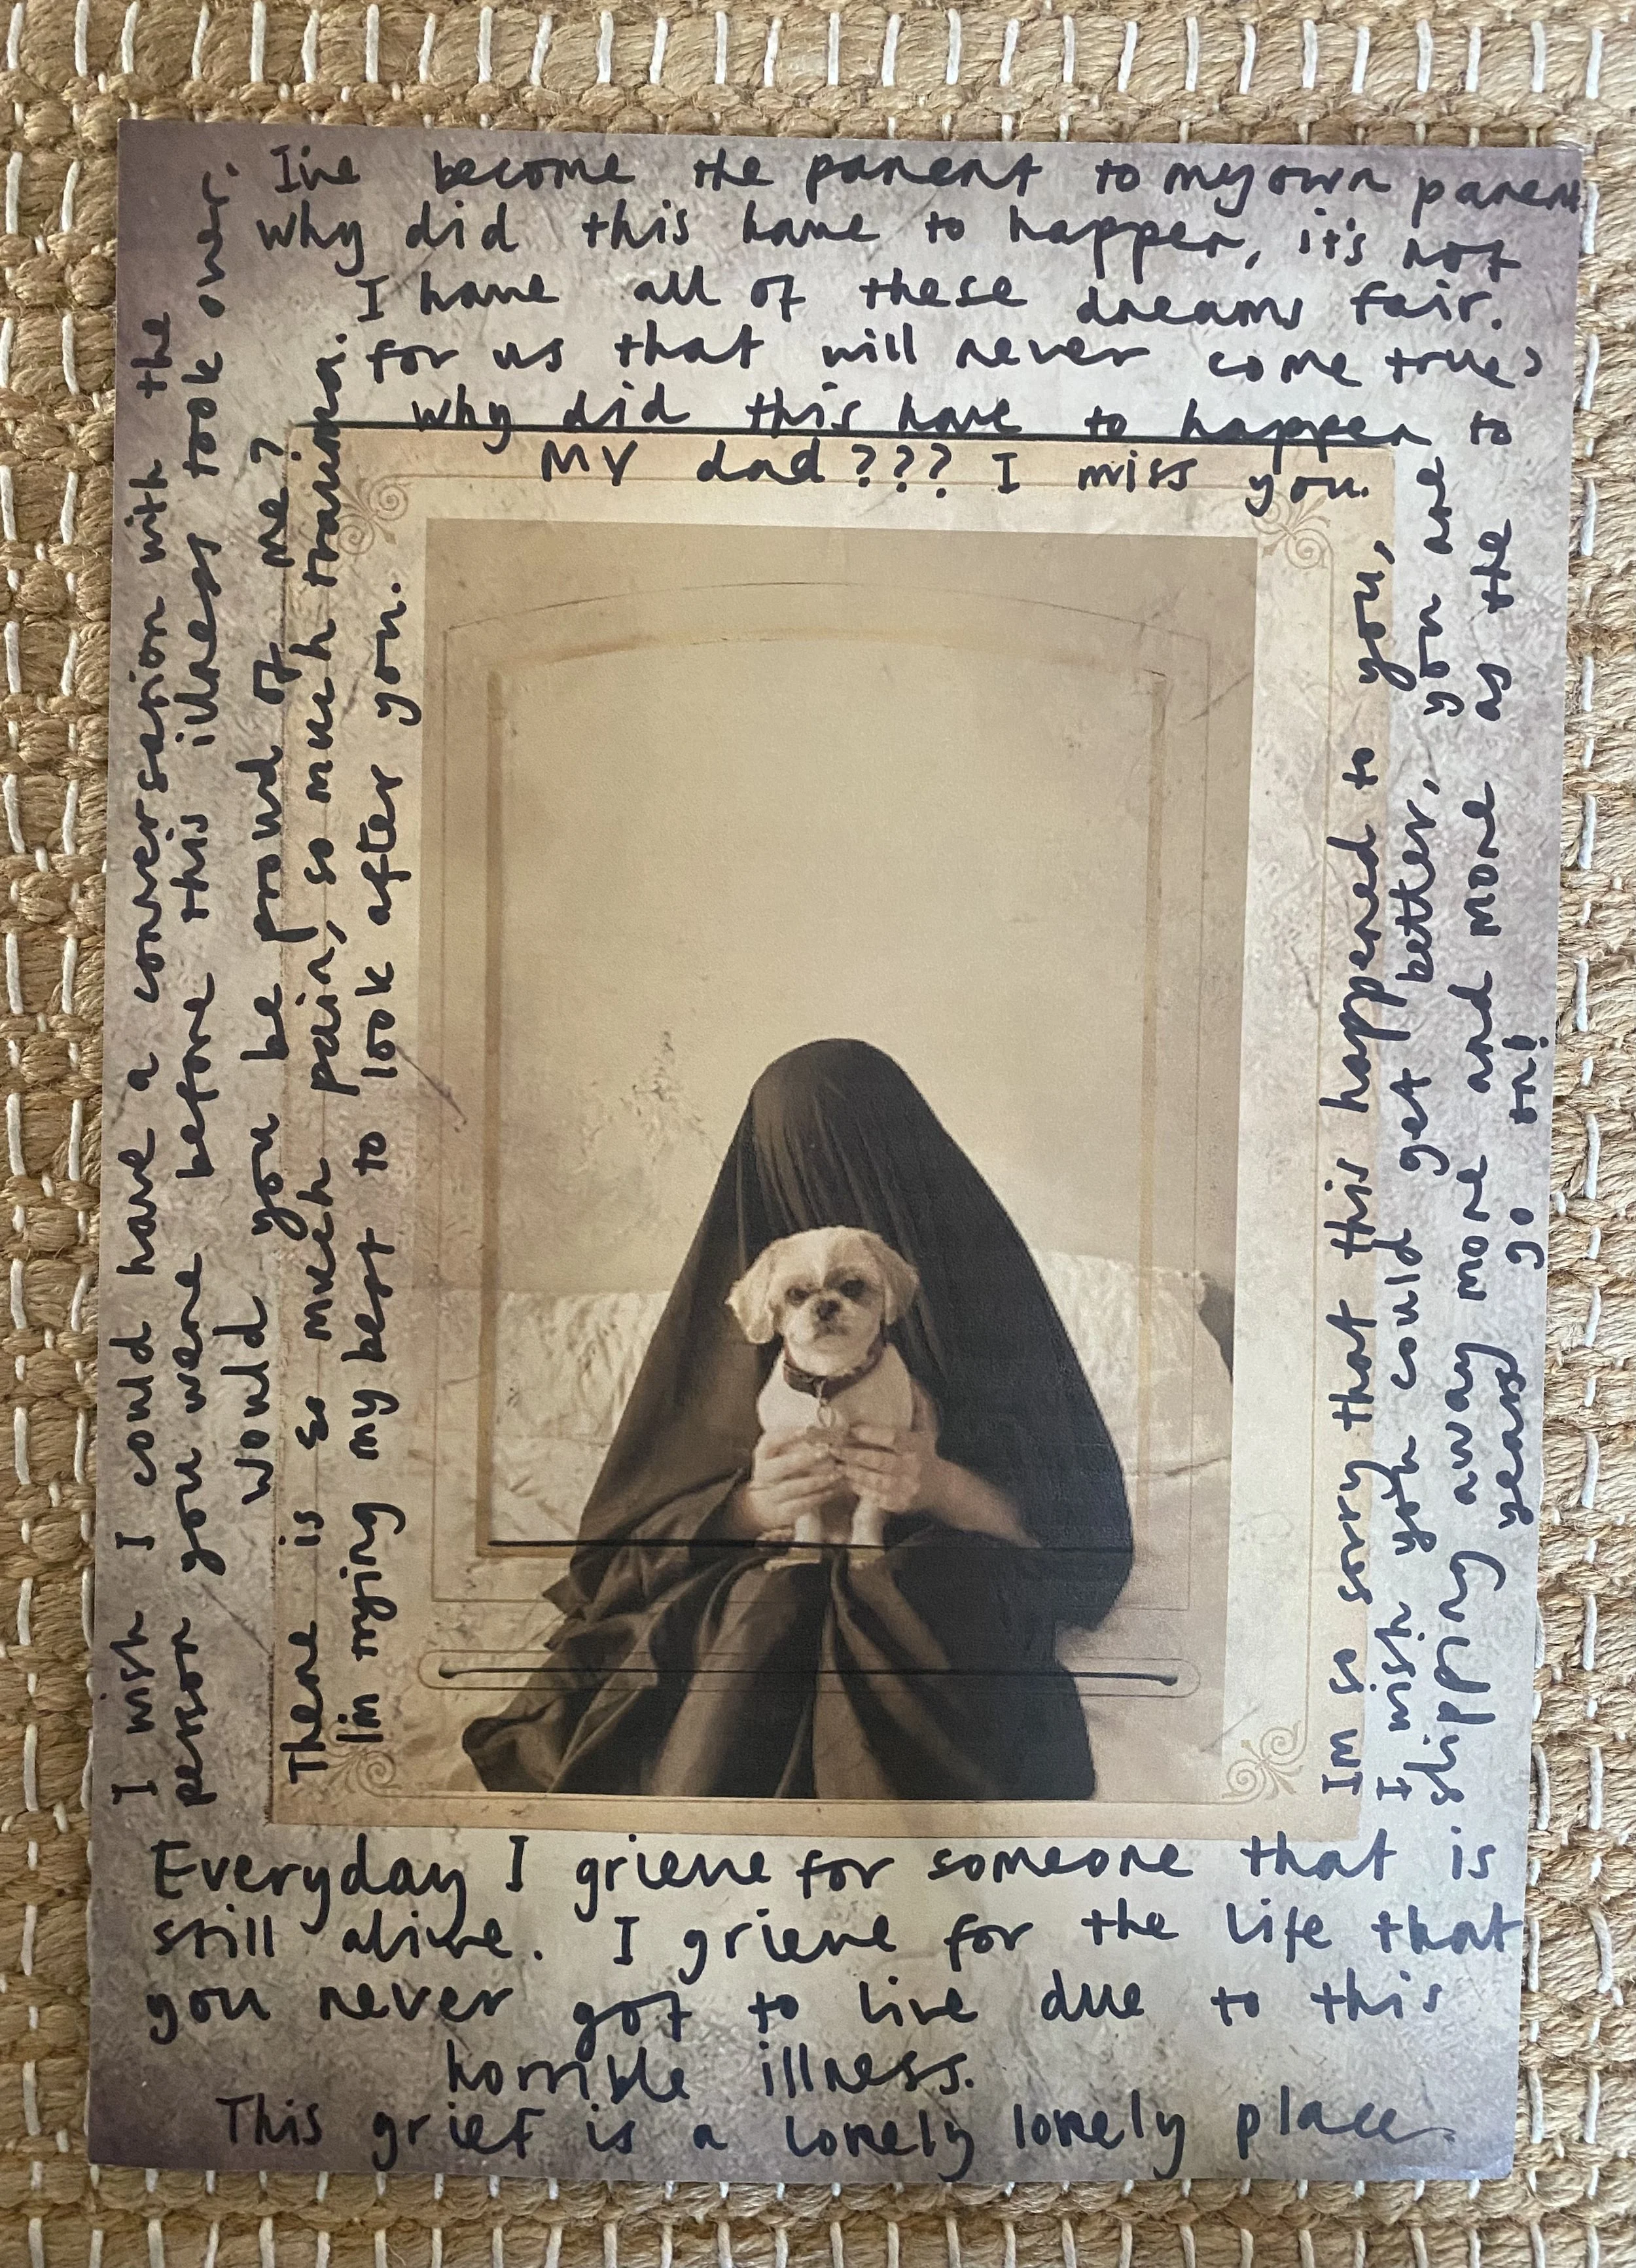 I've become the parent to my own parent.
why did this have to happen, it's not
fair.
I have all of these dreams
for us that will never come true?
why did this have to happen to
MY dad??? I miss you.
I wish I could have a conversation with the
person you were before this illness took over.
would you be proud of me?
There is so much pain, so much trauma.
I'm trying my best to look after you.
Im so sorry that this happened to you,
I wish you could get better, you are
slipping away more and more as the
years go on!
Everyday I grieve for someone that is
still alive. I grieve for the life that
you never got to live due to this
horrible illness.
This grief is a lonely lonely place.